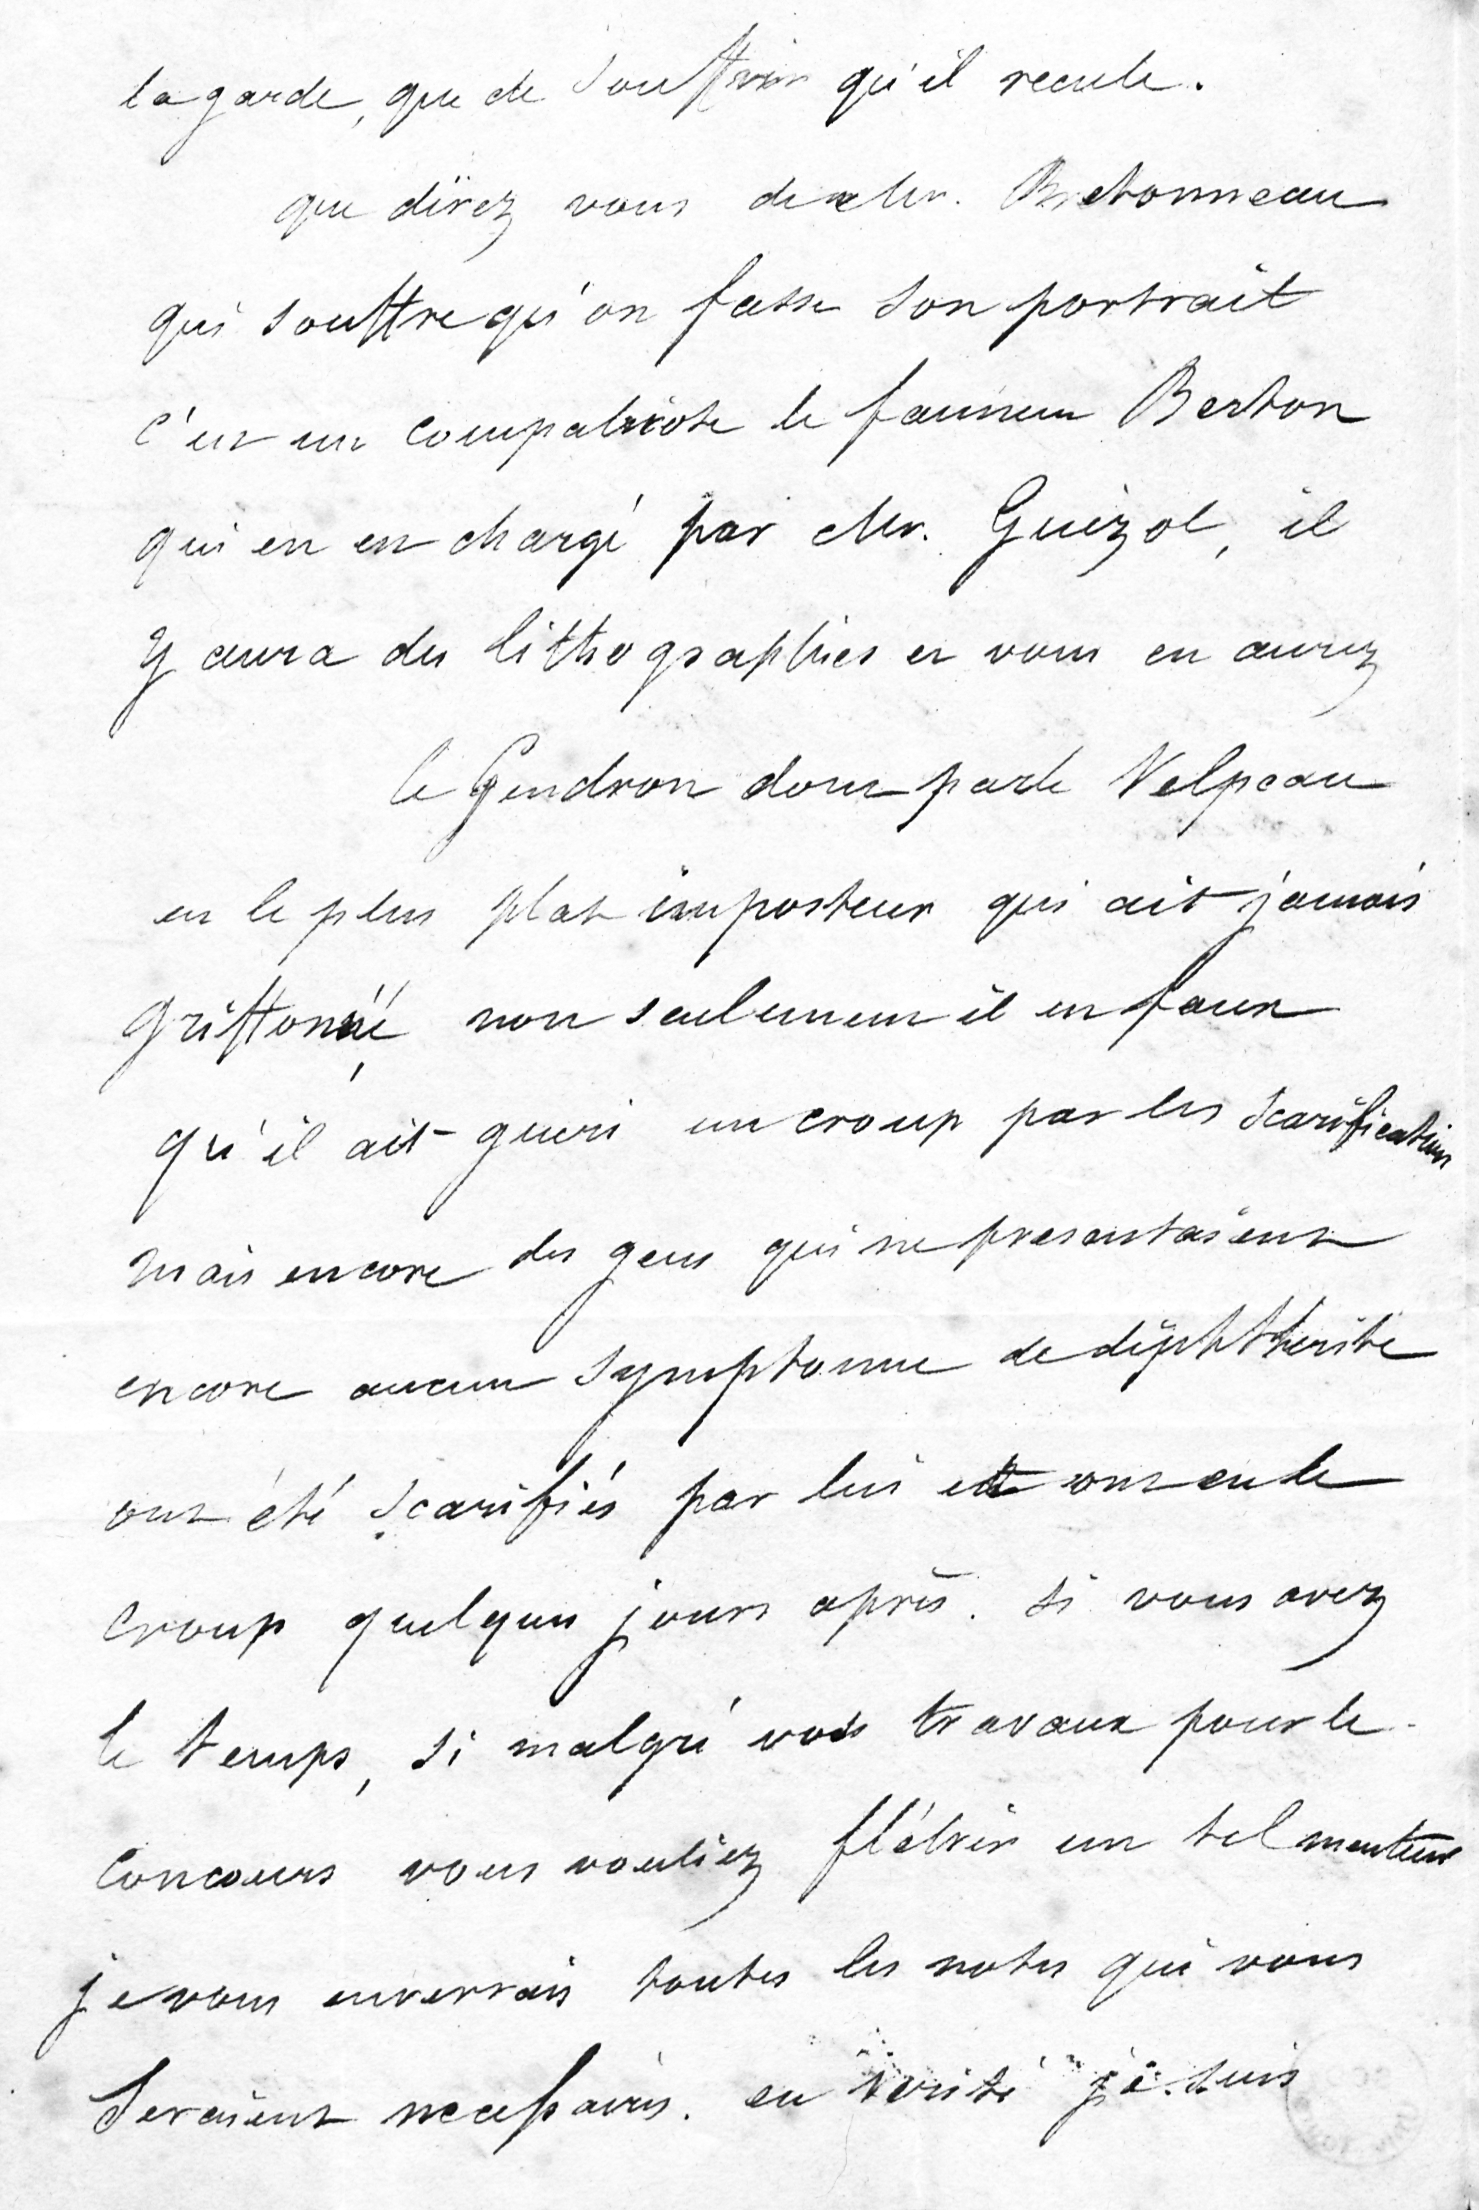 la garde, que de souffrir qu'il recule.
que direz vous de Mr. Bretonneau
qui souffre qu'on fasse son portrait
c'est un compatriote le fameux Berton
qui en est chargé par Mr. Guizot, il
y aura des lithographies et vous en aurez
le Gendron dont parle Velpeau
est le plus plat imposteur qui ait jamais
griffonné, non seulement il est faux
qu'il ait gueri un croup par les scarification
mais encore des gens qui ne presentaient
encore aucun symptome de diphtherite
ont été scarifiés par lui et ont eu le
croup quelques jours après. si vous avez
le temps, si malgré vos travaux pour le
concours vous vouliez flétrir un tel menteur
je vous enverrais toutes les notes qui vous
seraient necessaires. en verité je suis